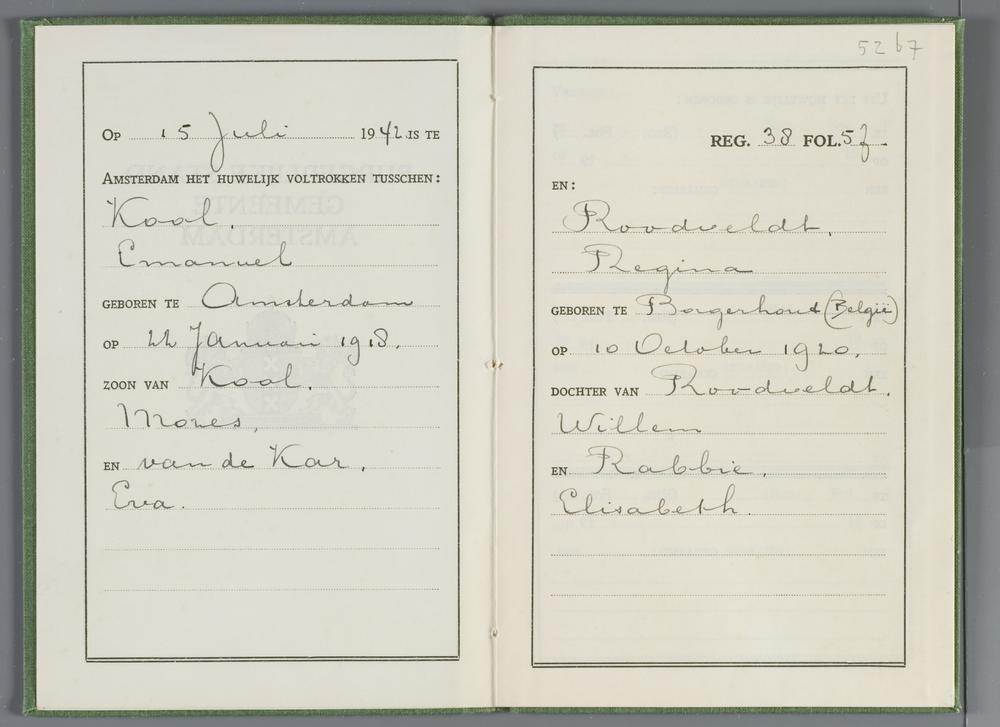 Op 15 Juli 1942 is te
Amsterdam het huwelijk voltrokken tusschen:
Kool,
Emanuel
geboren te Amsterdam
op 22 Januari 1918.
zoon van Kool,
Mozes,
en van de Kar,
Eva.
5267
Reg. 38 Fol. 5
en:
Roodveldt,
Regina
geboren te Borgerhout (België)
op 10 October 1920,
dochter van Roodveldt,
Willem
en Rabbie,
Elisabeth.